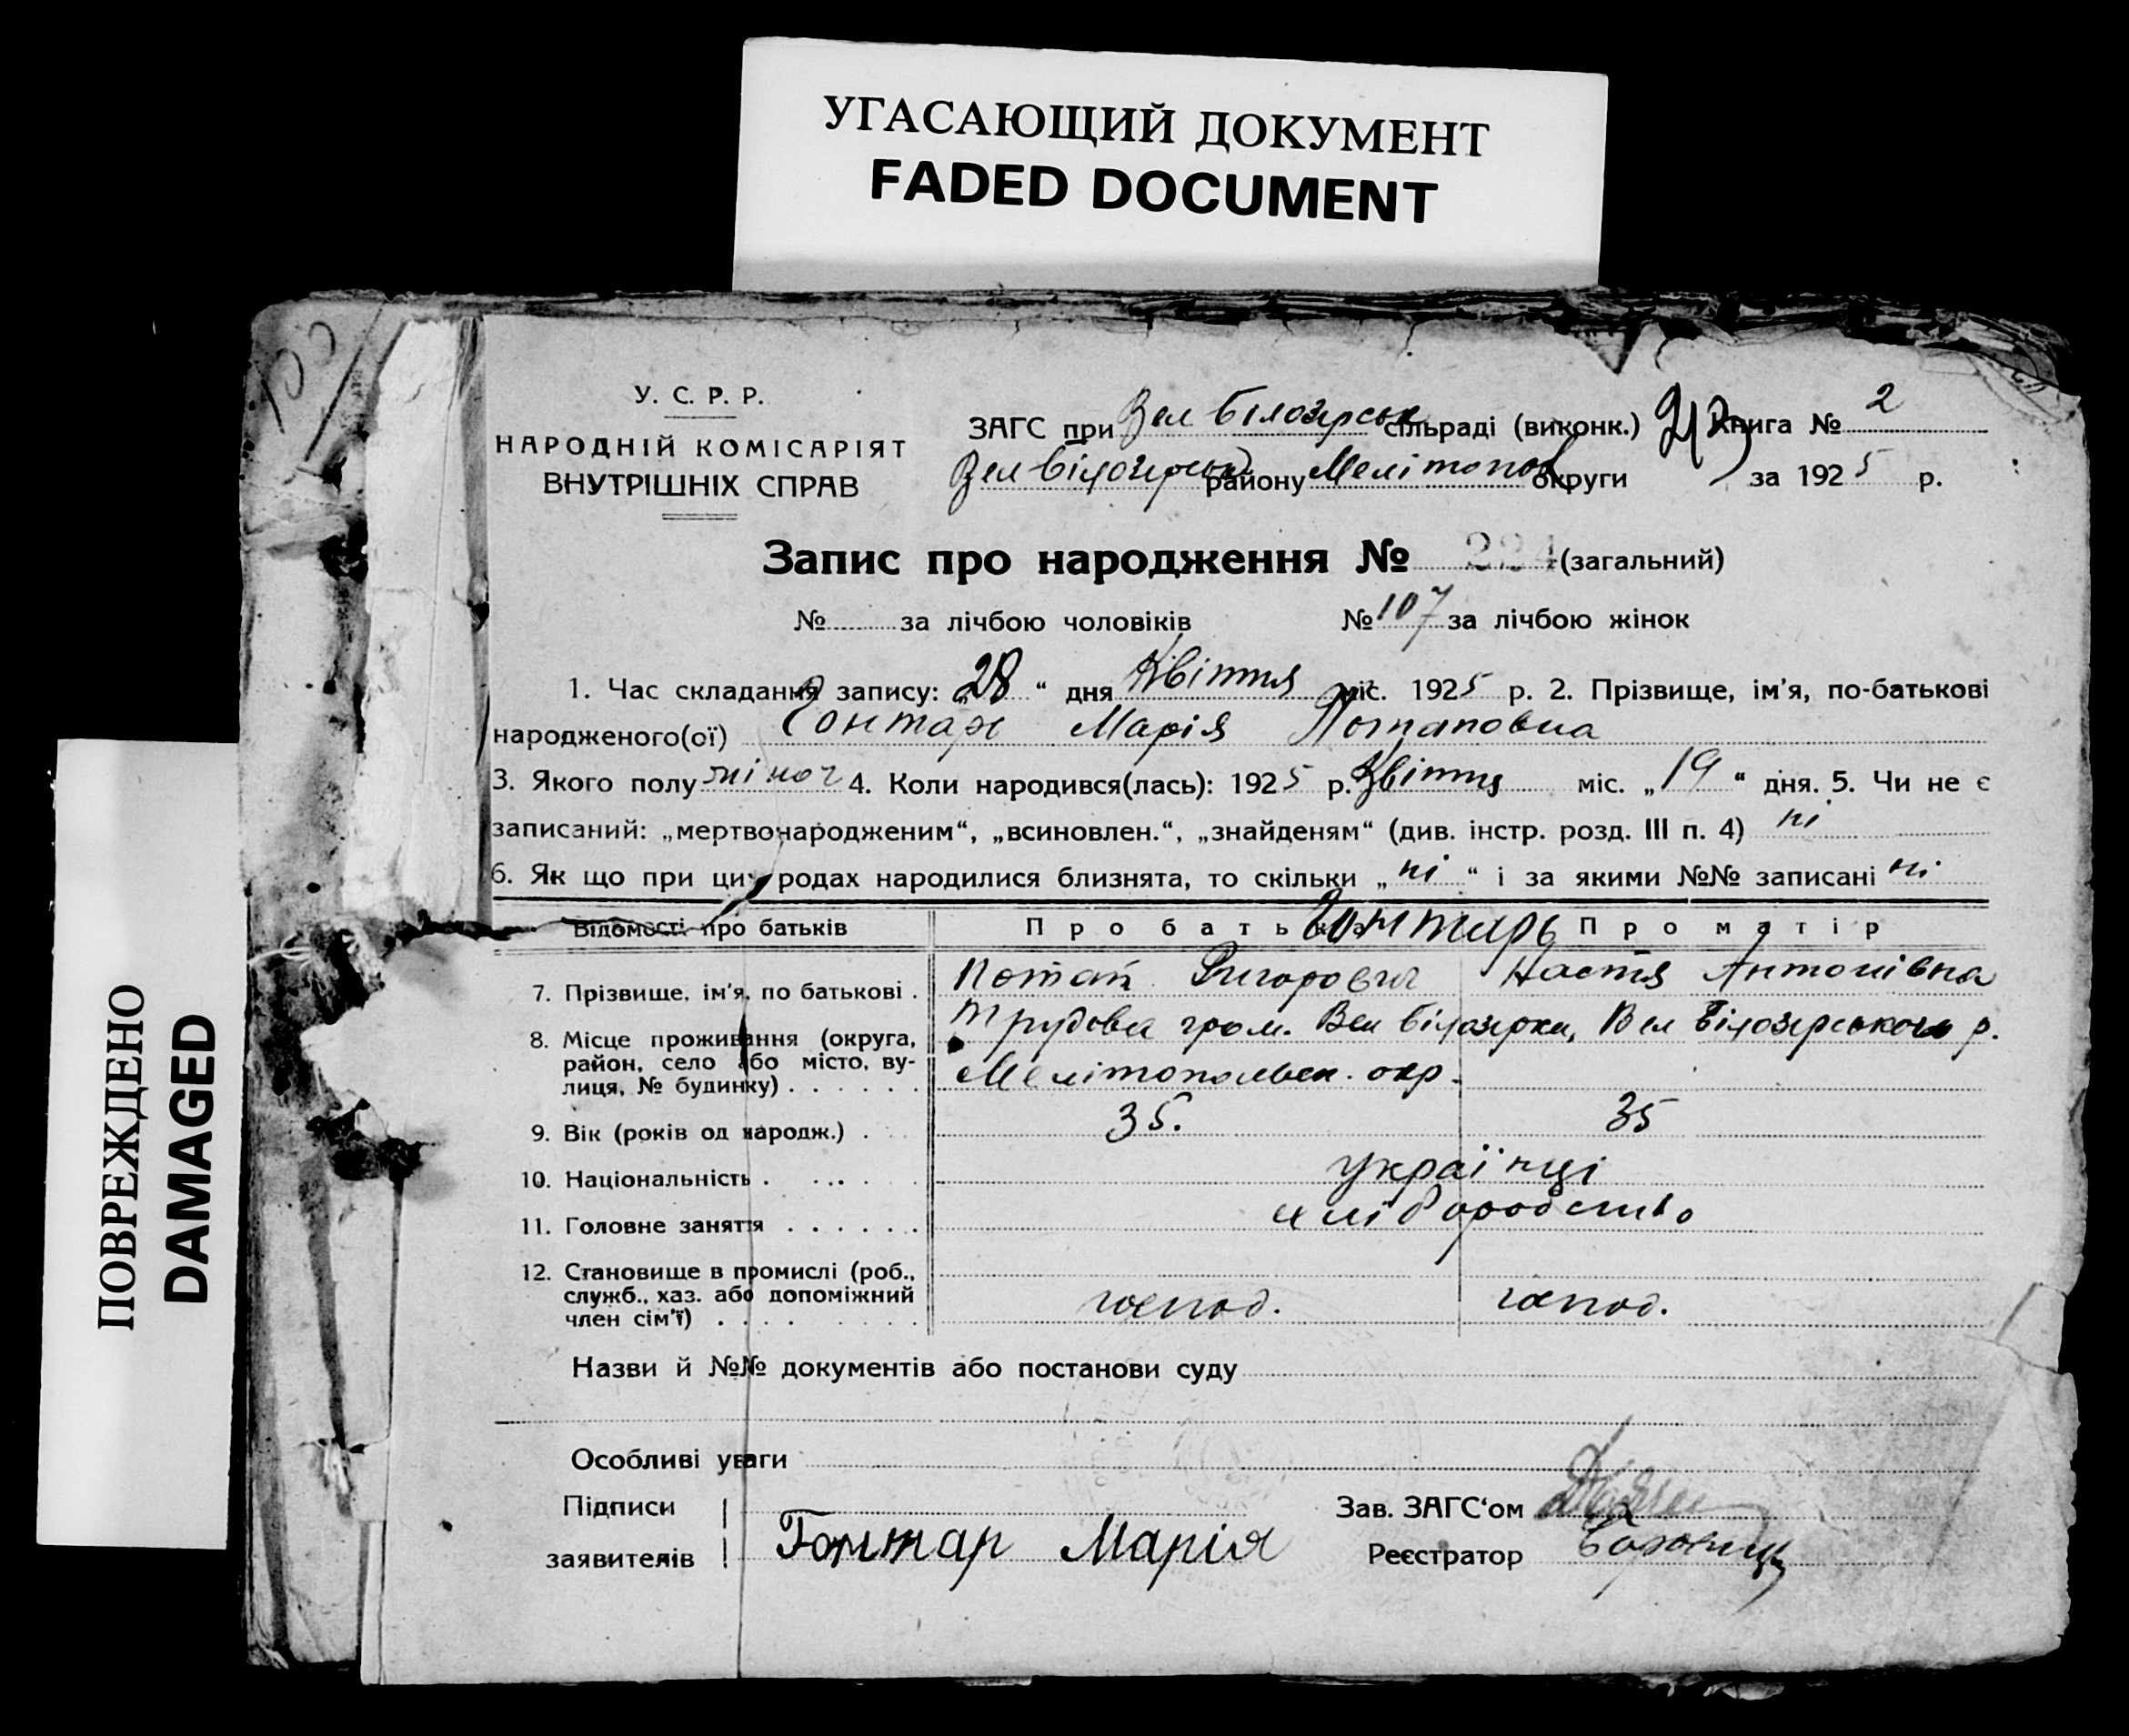 УГАСАЮЩИЙ ДОКУМЕНТ
FADED DOCUMENT
ПОВРЕЖДЕНО
DAMAGED
У. С. Р. Р.
НАРОДНІЙ КОМІСАРІЯТ
ВНУТРІШНІХ СПРАВ
ЗАГС при Вел Білозерськ сільраді (виконк.) Книга № 2
Вел Білозерськ району Мелітопол округи за 1925 р.
Запис про народження № 224 (загальний)
№ за лічбою чоловіків № 107 за лічбою жінок
1. Час складання запису: „28“ дня Квітня міс. 1925 р. 2. Прізвище, ім'я, по-батькові
народженого(ої) Гонтар Марія Потаповна
3. Якого полу жіноч 4. Коли народився(лась): 1925 р. Квітня міс. „19“ дня. 5. Чи не є
записаний: „мертвонародженим“, „всиновлен.“, „знайденям“ (див. інстр. розд. III п. 4) ні
6. Як що при цих родах народилися близнята, то скільки „ні“ і за якими №№ записані ні
Відомості про батьків Про батька Гонтарь Про матір
7. Прізвище, ім'я, по батькові . Потап Григорович Настя Антонівна
8. Місце проживання (округа, Трудова гром. Вел Білозерки, Вел Білозерського р.
район, село або місто, ву-
лиця, № будинку) . . . . . . Мелітопольськ. окр.
9. Вік (років од народж.) . 35. 35
10. Національність . . . . . українці
11. Головне заняття . . . . . . хліборобство
12. Становище в промислі (роб.,
служб., хаз. або допоміжний господ. господ.
член сім'ї) . . . . . . . .
Назви й №№ документів або постанови суду
Особливі уваги
Підписи Зав. ЗАГС'ом
заявителів Гонтар Марія Реєстратор